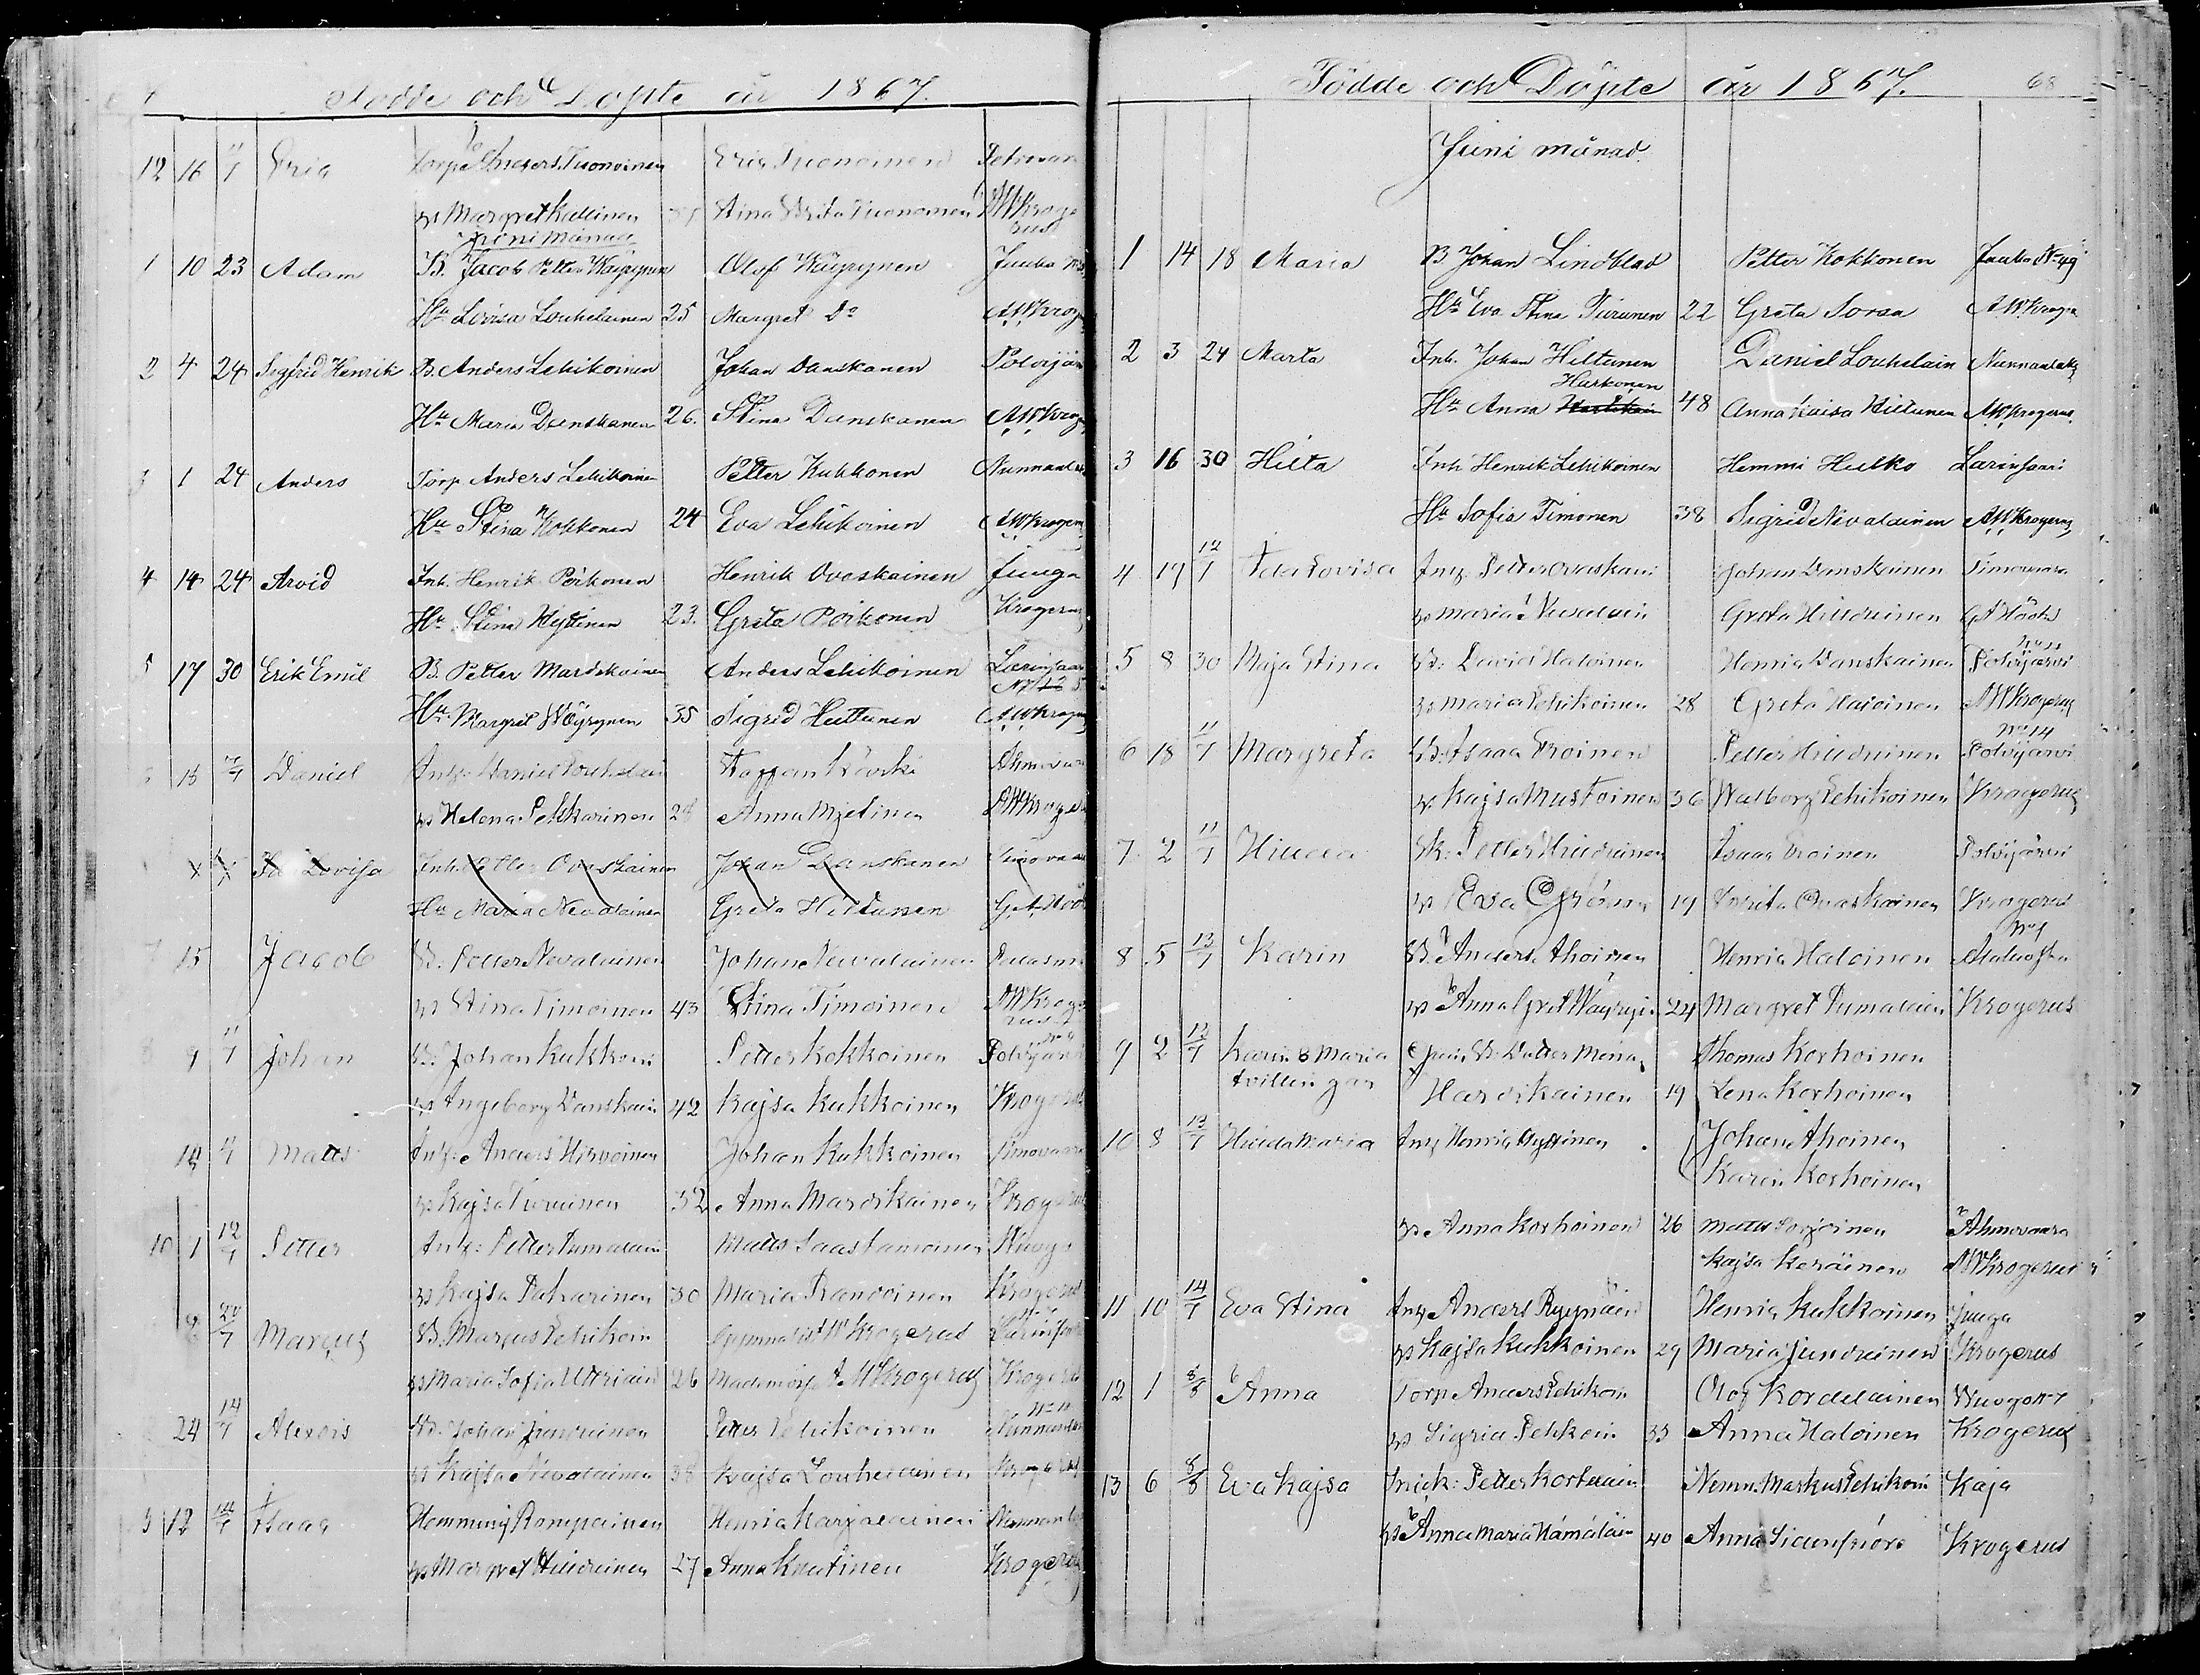 Födde och Döpte år 1867.
12 16 11/7 Eric Torp Tuononen Eric Tuononen
hs Margret Kallinen Stina Brita Tuononen AWKrogerus
Juni Månad
1 10 23 Adam B. Jacob Petter Wäyrynen Olof Wäyrynen Juuka
Hu Lovisa Louhelainen 25 Margret Do AWKrog
2 4 24 Sigfrid Henrik B. Anders Lehikoinen Johan Danskanen Polvijär
Hu Maria Danskanen 26. Stina Danskanen AWKrog
3 1 24 Anders Torp Anders Lehikoinen Petter Kukkonen Nunnanl
Hu Stina Kokkonen 24 Eva Lehikoinen AWKrogerus
4 14 24 Arvid Inh. Henrik Pörkonen Henrik Ovaskainen Juuga
Hu Stina Hyttinen 23. Greta Pörkonen Krogerus
5 17 30 Erik Emil B. Petter Mardikainen Anders Lehikoinen Larinsaari
Hu Margret Wäyrynen 35 Sigrid Huttunen AWKrogerus
6 15 7/7 Daniel Inh. Daniel Louhelain Staffan Ahmovaara
hs Helena Pekkarinen 28 Anna Mjetinen AWKroger
Ida Lovisa Inh. Petter Ovaskainen Johan Danskanen Timovaa
Hu Maria Nevalainen Greta Hiltunen G.A. Höö
7 15 Jacob B. Petter Nevalainen Johan Nevalainen
hs Stina Timoinen 43 Stina Timoinen AWKrogerus
9 11/7 Johan B. Johan Kukkoin Petter Kokkoinen Polvijärvi
hs Ingeborg Danskain 42 Kajsa Kukkoinen Krogerus
14 4 Matts Inh. Anders Hirvoinen Johan Kukkoinen Timovaara
hs Kajsa Turuinen 32 Anna Mardikainen Kroger
10 7 12/7 Petter Inh. Petter Tumalain Matts Saastamoinen
hs Kajsa Paharinen 30 Maria Randoinen Krogerus
8 20/7 Marcus B. Marcus Lehikoin Gymnalist W Krogerus Larinsaari
hs Maria Sofia Uttriain 26 Mademois. A M Krogerus Krogerus
24 14/7 Alexis B. Johan Jundrinen Petter Lehikoinen Nunnanl
hs Kajsa Nevalainen 38 Kajsa Louhelainen Krogerus
3 12 14/7 Isaac Hemming Rompainen Henric Karjalainen Nunnanl
hs Margret Hilduinen 27 Anna Knutinen Krogerus
Födde och Döpte år 1867. 68
Juni månad.
1 14 18 Maria B Johan Lindblad Petter Kokkonen Juuka No 49
Hu Eva Stina Turunen 22 Greta Sorsa A.W. Kroger
2 3 24 Marta Inh. Johan Hiltunen Daniel Louhelain Nunnanlaks
Hurkonen
Hu Anna 48 Anna Kaisa Hiltunen AWKrogerus
3 16 30 Hilta Inh Henrik Lehikoinen Hemmi Hulko Larinsaari
Hu Sofia Timonen 38 Sigrid Nevalainen AWKrogerus
4 17 12/7 Ida Lovisa Inh. Petter Ovaskain Johan Danskainen Timovaara
hs Maria Nevalain Greta Hilduinen GA Höök
5 8 30 Maja Stina B. David Haloinen Henric Danskainen Polvijärvi
hs Maria Lehikoinen 28 Greta Haloinen AWKrogerus
No 14
6 18 11/7 Margreta B. Isaac Eroinen Petter Hilduinen Polvijärvi
hs Kajsa Mustoinen 36 Walborg Lehikoinen Krogerus
7 2 11/7 Hilda Sk. Petter Hilduinen Isaac Eroinen Polvijärvi
hs Eva 19 Brita Ovaskainen Krogerus
8 5 13/7 Karin B. Anders Ahoinen Henric Haloinen
hs Anna Gret Wäyryin 24 Margret Tumalain Krogerus
9 2 13/7 Karin & Maria Dotter Thomas Korhoinen
tvillingar Hardikainen 19 Lena Korhoinen
10 8 13/7 Hilda Maria Inh Henric Hyttinen Johan Ahoinen
Karin Korhoinen
hs Anna Korhoinen 26 Matts Sorjoinen Ahmovaara
Kajsa Keräinen AWKrogerus
11 10 14/7 Eva Stina Inh Anders Ryynäin Henric Kukkoinen Juuga
hs Kajsa Kukkoinen 29 Maria Jundrinen Krogerus
12 1 8/8 Anna Torp Anders Lehikoin Olof Kordelainen
hs Sigrid Pehkoin 35 Anna Haloinen Krogerus
13 6 8/8 Eva Kajsa Petter Kortelain Nemn. Markus Lehikoin Kaja
hs Anna Maria Hämäläin 40 Anna Krogerus